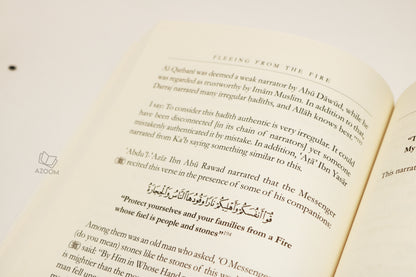 FLEEING FROM THE FIRE
Al-Qurṭubī was deemed a weak narrator by Abū Dāwūd, while he
was regarded as trustworthy by Imām Muslim. In addition to that,
Darraj narrated many irregular hadiths, and Allāh knows best.
I say: To consider this hadith authentic is very irregular. It could
have been disconnected [in its chain of narrators] yet someone
mistakenly authenticated it by mistake. In addition, 'Aṭā' Ibn Yasār
narrated from Ka'b saying something similar to this.
'Abdu'l-'Azīz Ibn Abū Rawad narrated that the Messenger
ﷺ recited this verse in the presence of some of his companions:
قُوٓا۟ أَنفُسَكُمْ وَأَهْلِيكُمْ نَارًا وَقُودُهَا ٱلنَّاسُ وَٱلْحِجَارَةُ
"Protect yourselves and your families from a Fire
whose fuel is people and stones"
Among them was an old man who asked, 'O Messenger
(do you mean) stones like the stones of this wo
ﷺ said: "By Him in Whose Hand
man fell un
AZOOM
My
This narra